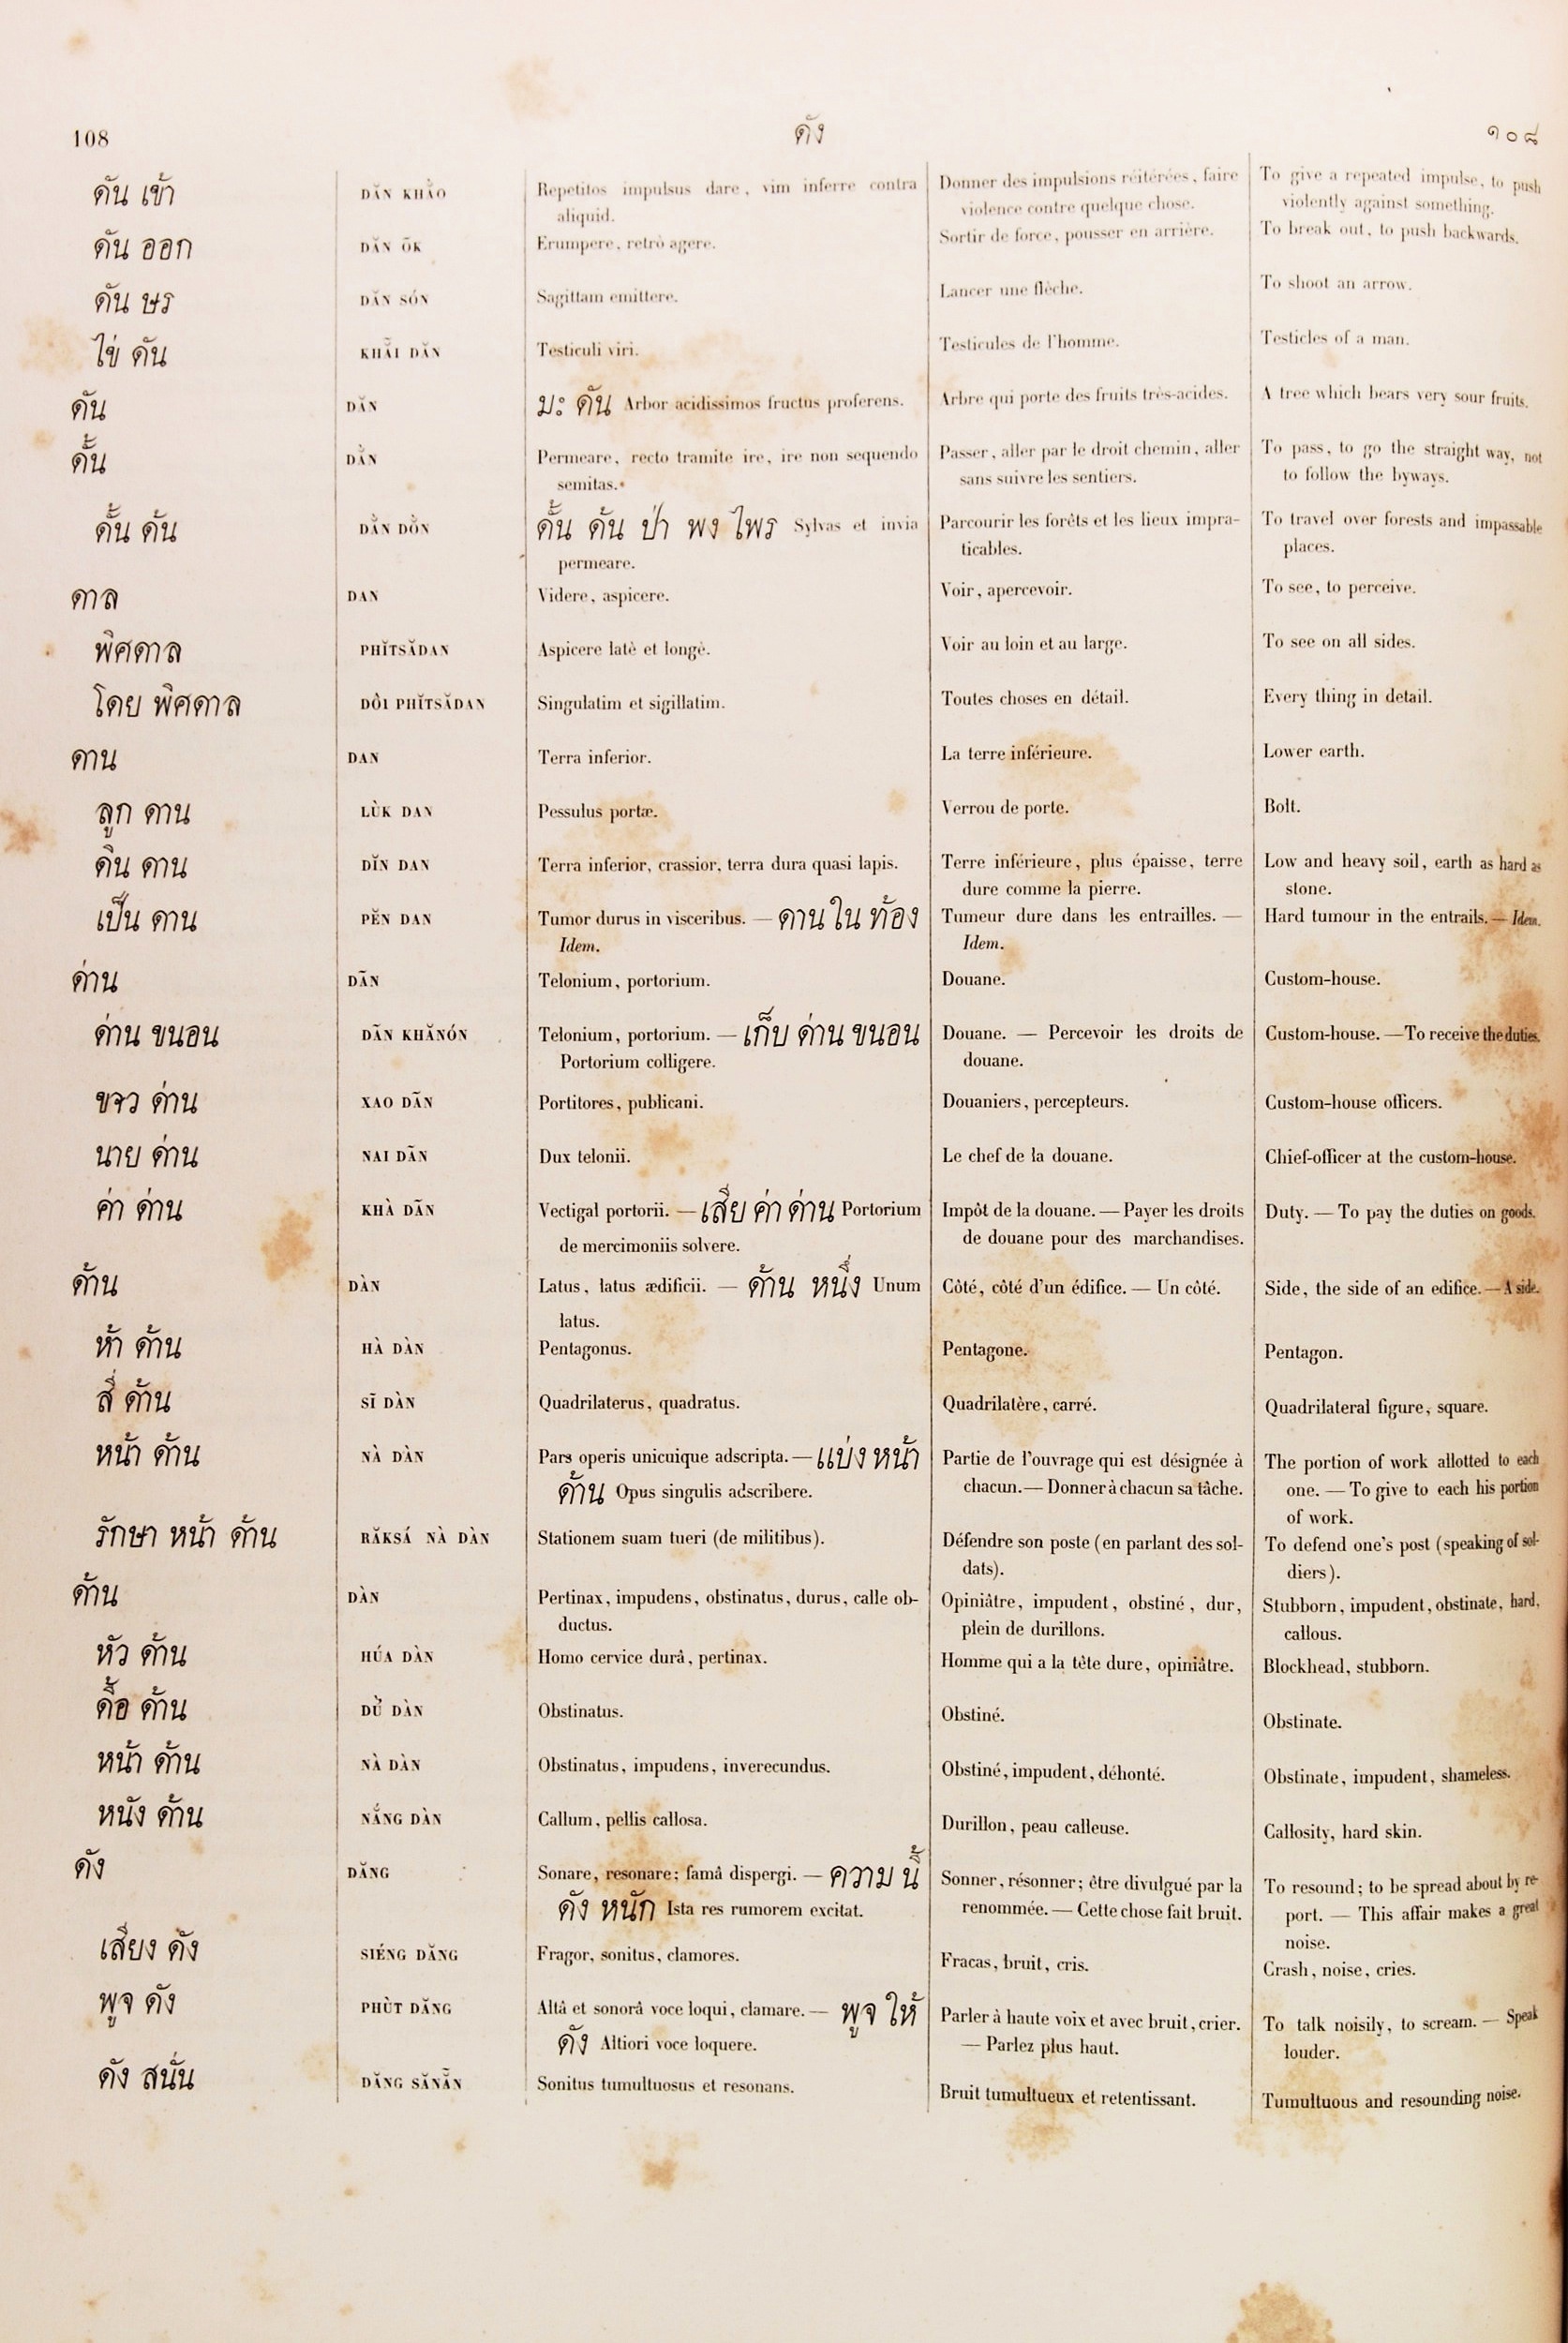 108 ดัง ๑๐๘
ดัน เข้า DĂN KHÀO Repetitos impulsus dare, vim inferre contra Donner des impulsions réitérées, faire To give a repeated impulse, to push
aliquid. violence contre quelque chose. violently against something.
ดัน ออก DĂN ŌK Erumpere, retrò agere. Sortir de force, pousser en arrière. To break out, to push backwards.
ดัน ษร DĂN SÓN Sagittam emittere. Lancer une flèche. To shoot an arrow.
ไข่ ดัน KHĂI DĂN Testiculi viri. Testicules de l'homme. Testicles of a man.
ดัน DĂN มะ ดัน Arbor acidissimos fructus proferens. Arbre qui porte des fruits très-acides. A tree which bears very sour fruits.
ดั้น DẰN Permeare, recto tramite ire, ire non sequendo Passer, aller par le droit chemin, aller To pass, to go the straight way, not
semitas. sans suivre les sentiers. to follow the byways.
ดั้น ด้น DẰN DỒN ดั้น ด้น ป่า พง ไพร Sylvas et invia Parcourir les forêts et les lieux impra- To travel over forests and impassable
permeare. ticables. places.
ดาล DAN Videre, aspicere. Voir, apercevoir. To see, to perceive.
พิศดาล PHĬTSĂDAN Aspicere latè et longè. Voir au loin et au large. To see on all sides.
โดย พิศดาล DÔI PHĬTSĂDAN Singulatim et sigillatim. Toutes choses en détail. Every thing in detail.
ดาน DAN Terra inferior. La terre inférieure. Lower earth.
ลูก ดาน LÙK DAN Pessulus portæ. Verrou de porte. Bolt.
ดิน ดาน DĬN DAN Terra inferior, crassior, terra dura quasi lapis. Terre inférieure, plus épaisse, terre Low and heavy soil, earth as hard as
dure comme la pierre. stone.
เป็น ดาน PĔN DAN Tumor durus in visceribus. — ดาน ใน ท้อง Tumeur dure dans les entrailles. — Hard tumour in the entrails. — Idem.
Idem. Idem.
ด่าน DÃN Telonium, portorium. Douane. Custom-house.
ด่าน ขนอน DÃN KHĂNÓN Telonium, portorium. — เก็บ ด่าน ขนอน Douane. — Percevoir les droits de Custom-house. — To receive the duties.
Portorium colligere. douane.
ชาว ด่าน XAO DÃN Portitores, publicani. Douaniers, percepteurs. Custom-house officers.
นาย ด่าน NAI DÃN Dux telonii. Le chef de la douane. Chief-officer at the custom-house.
ค่า ด่าน KHÀ DÃN Vectigal portorii. — เสีย ค่า ด่าน Portorium Impôt de la douane. — Payer les droits Duty. — To pay the duties on goods.
de mercimoniis solvere. de douane pour des marchandises.
ด้าน DÀN Latus, latus ædificii. — ด้าน หนึ่ง Unum Côté, côté d'un édifice. — Un côté. Side, the side of an edifice. — A side.
latus.
ห้า ด้าน HÀ DÀN Pentagonus. Pentagone. Pentagon.
สี่ ด้าน SĨ DÀN Quadrilaterus, quadratus. Quadrilatère, carré. Quadrilateral figure, square.
หน้า ด้าน NÀ DÀN Pars operis unicuique adscripta. — แบ่ง หน้า Partie de l'ouvrage qui est désignée à The portion of work allotted to each
ด้าน Opus singulis adscribere. chacun. — Donner à chacun sa tâche. one. — To give to each his portion
of work.
รักษา หน้า ด้าน RĂKSÁ NÀ DÀN Stationem suam tueri (de militibus). Défendre son poste (en parlant des sol- To defend one's post (speaking of sol-
dats). diers).
ด้าน DÀN Pertinax, impudens, obstinatus, durus, calle ob- Opiniâtre, impudent, obstiné, dur, Stubborn, impudent, obstinate, hard,
ductus. plein de durillons. callous.
หัว ด้าน HÚA DÀN Homo cervice durâ, pertinax. Homme qui a la tête dure, opiniâtre. Blockhead, stubborn.
ดื้อ ด้าน DỪ DÀN Obstinatus. Obstiné. Obstinate.
หน้า ด้าน NÀ DÀN Obstinatus, impudens, inverecundus. Obstiné, impudent, déhonté. Obstinate, impudent, shameless.
หนัง ด้าน NẮNG DÀN Callum, pellis callosa. Durillon, peau calleuse. Callosity, hard skin.
ดัง DĂNG Sonare, resonare; famâ dispergi. — ความ นี้ Sonner, résonner; être divulgué par la To resound; to be spread about by re-
ดัง หนัก Ista res rumorem excitat. renommée. — Cette chose fait bruit. port. — This affair makes a great
noise.
เสียง ดัง SIÉNG DĂNG Fragor, sonitus, clamores. Fracas, bruit, cris. Crash, noise, cries.
พูจ ดัง PHÙT DĂNG Altâ et sonorâ voce loqui, clamare. — พูจ ให้ Parler à haute voix et avec bruit, crier. To talk noisily, to scream. — Speak
ดัง Altiori voce loquere. — Parlez plus haut. louder.
ดัง สนั่น DĂNG SĂNẴN Sonitus tumultuosus et resonans. Bruit tumultueux et retentissant. Tumultuous and resounding noise.